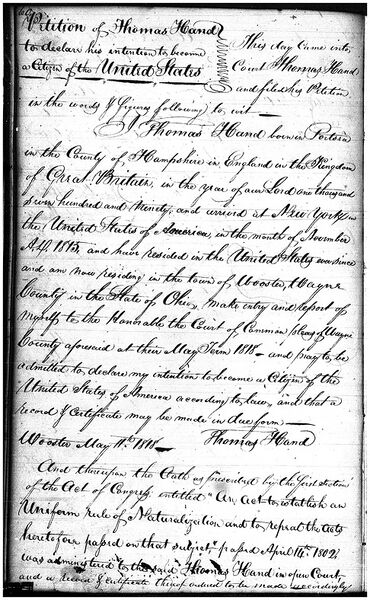 Petition of Thomas Hand
to declare his intention to become
a Citizen of the United States
This day Came into
Court Thomas Hand
and filed his Petition
in the words & figures following to wit—
I Thomas Hand born in
in the County of Hampshire in England in the Kingdom
of Great Britain, in the year of our Lord one thousand
seven hundred and Ninety, and arrived at New York in
the United States of America, in the month of November
A.D. 1815, and have resided in the United States ever since
and am now residing in the town of Wooster, Wayne
County in the State of Ohio, make entry and report of
myself to the Honorable the Court of Common pleas of Wayne
County aforesaid at their May Term 1818— and pray to be
admitted to declare my intention to become a Citizen of the
United States of America according to law, and that a
record & Certificate may be made in due form—
Wooster May 11th 1818— Thomas Hand
And thereupon the Oath as presented by the first section
of the Act of Congress entitled "An Act to establish an
Uniform rule of Naturalization and to repeal the acts
heretofore passed on that subject" passed April 14th 1802
was administered to the said Thomas Hand in open Court,
and a Record & Certificate thereof ordered to be made accordingly